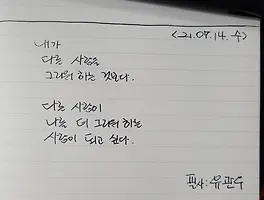 <21.07.14.수>
내가
다른 사람을
그리워 하는 것보다.
다른 사람이
나를 더 그리워 하는
사람이 되고 싶다.
필사:유관우